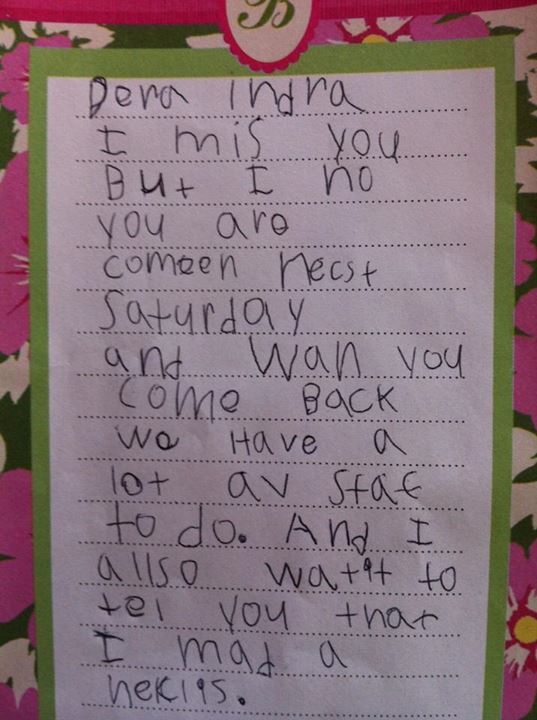 B
Dera Indra
I mis you
But I no
you are
comeen necst
Saturday
and wan you
come Back
we Have a
lot av staf
to do. And I
allso watit to
tel you that
I mad a
neklis.